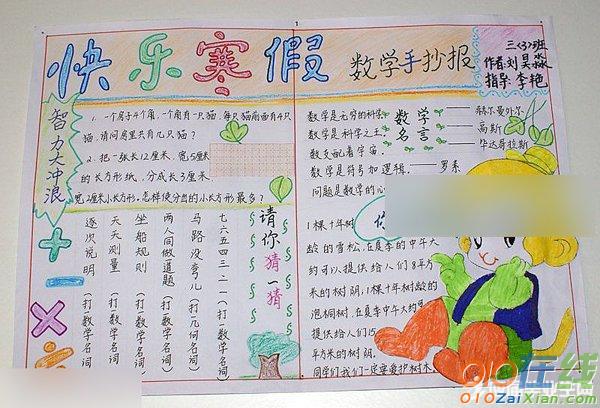 快乐寒假
数学手抄报
三〈3〉班
作者:刘昊淼
指导:李艳
智力大冲浪
1. 一个房子4个角,一个角有一只猫,每只猫前面有4只
猫,请问房里共有几只猫?
2. 把一张长12厘米,宽5厘米
的长方形纸,分成长3厘米,
宽2厘米小长方形,怎样使分出的小长方形最多?
请你猜一猜
七六五四三二一(打一数学名词)
马路没弯儿(打几何名词)
两人同做道题(打一数学名词)
坐船规则(打一数学名词)
天天测量(打一数学名词)
逐次说明(打一数学名词)
数学名言
数学是无穷的科学——赫尔曼外尔
数学是科学之王——高斯
数支配着宇宙.——毕达哥拉斯
数学是符号加逻辑.——罗素
问题是数学的心
你
1棵十年树
龄的雪松,在夏季的中午大
约可以提供给人们8平方
米的树阴;1棵十年树龄的
泡桐树,在夏季中午大约
提供给人们15
平方米的树阴,
同学们我们一定要爱护树木
010在线
010ZaiXian.com